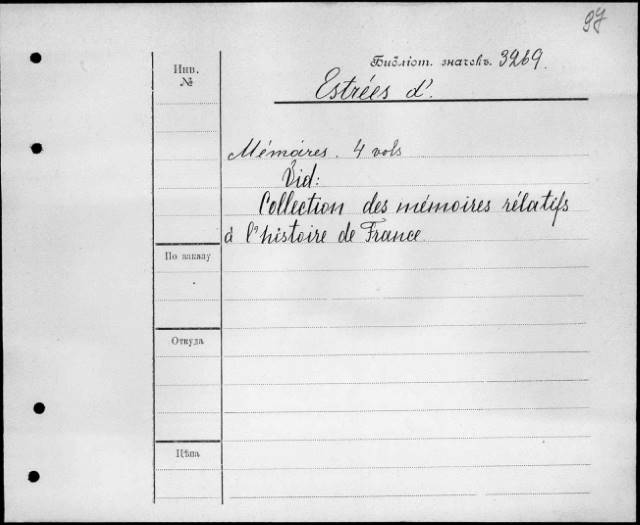 97
Инв.
№
Библіот. значекъ 3269.
Estrées d'.
Mémoires. 4 vols
Vid:
Collection des mémoires rélatifs
à l'histoire de France
По заказу
Откуда
Цѣна